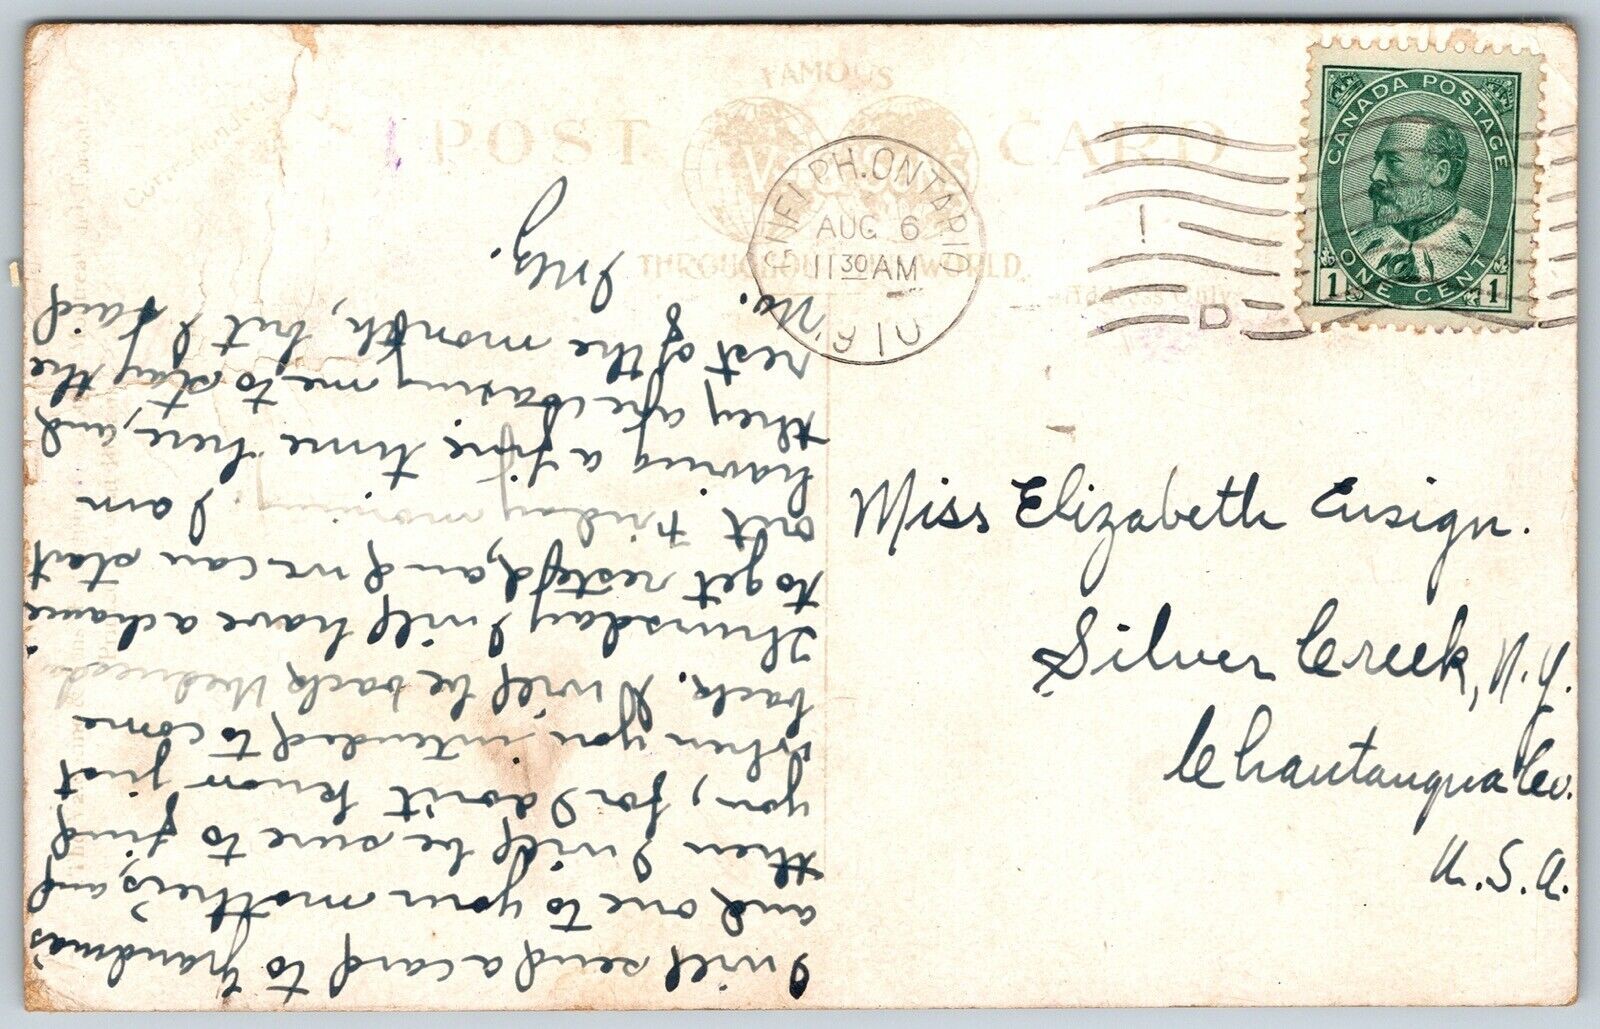 FAMOUS
POST CARD
V. & Sons
THROUGHOUT THE WORLD
Correspondence
Address Only
GUELPH, ONTARIO
AUG 6
11 30 AM
1910
D
CANADA POSTAGE
1 ONE CENT 1
Miss Elizabeth Ensign.
Silver Creek, N.Y.
Chautauqua Co.
U.S.A.
I will send a card to grandma's
and one to your mother's, and
then I will be sure to find
you, for I don't know just
when you intended to come
back. I will be back Wednesd.
Thursday I will have a chance
to get rested, and we can start
out Friday morning. I am
having a fine time here, and
they are teasing me to stay the
rest of the month, but I said
No.
Inez.